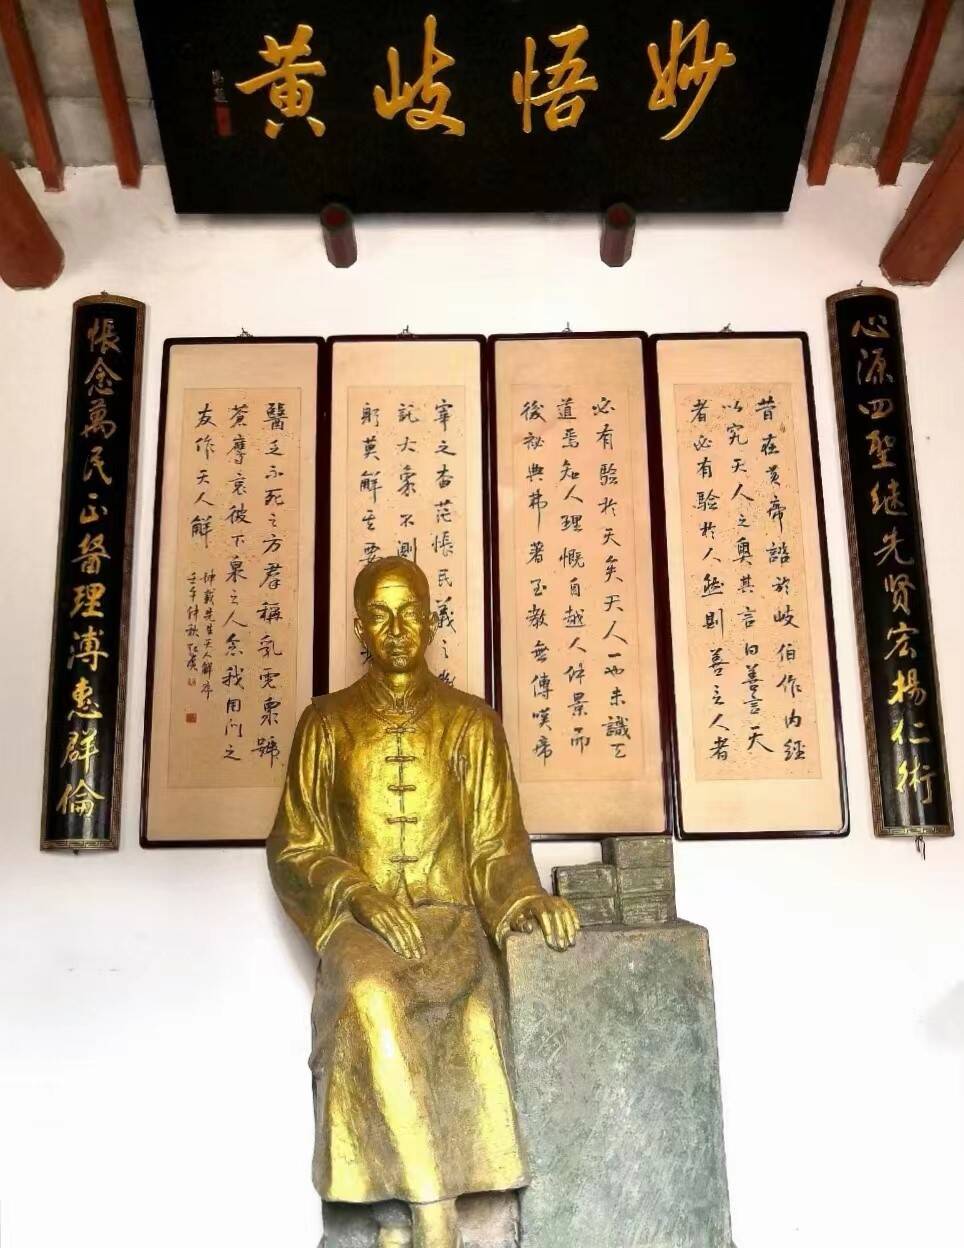 妙悟岐黄
心源四聖继先贤宏揚仁術
昔在黄帝諮於岐伯作内經
以究天人之奥其言曰善言天
者必有驗於人然則善言人者
必有驗於天矣天人一也未識天
道焉知人理慨自越人景而
後祕典弗著至教無傳嘆帝
宰之杳茫悵民義之
託大象不測
躬莫解
醫乏不死之方群稱乳虎衆號
蒼鷹哀彼下泉之人念我同門之
友作天人解
坤載先生天人解序
壬午仲秋
悵念萬民正醫理溥惠群倫